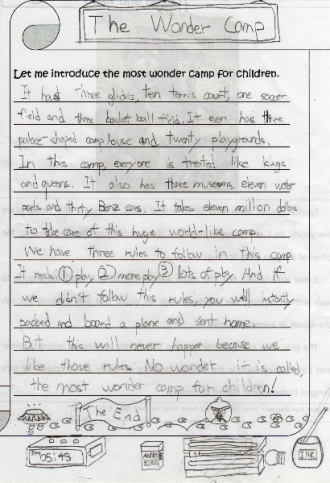 The Wonder Camp
Let me introduce the most wonder camp for children.
It has three glides, ten tennis court, one soccer
field and three basket ball field. It even has three
palace-shaped camp house and twenty playgrounds.
In this camp, everyone is treated like kings
and queens. It also has three museums, eleven water
parks and thirty Benz cars. It takes eleven million dollars
to take care of this huge world-like camp.
We have three rules to follow in this camp.
It reads ① play ② more play ③ lots of play. And if
we didn't follow this rules, you will instantly
packed and board a plane and sent home.
But this will never happen because we
like those rules. No wonder it is called,
the most wonder camp for children!
The End
05:43
INK